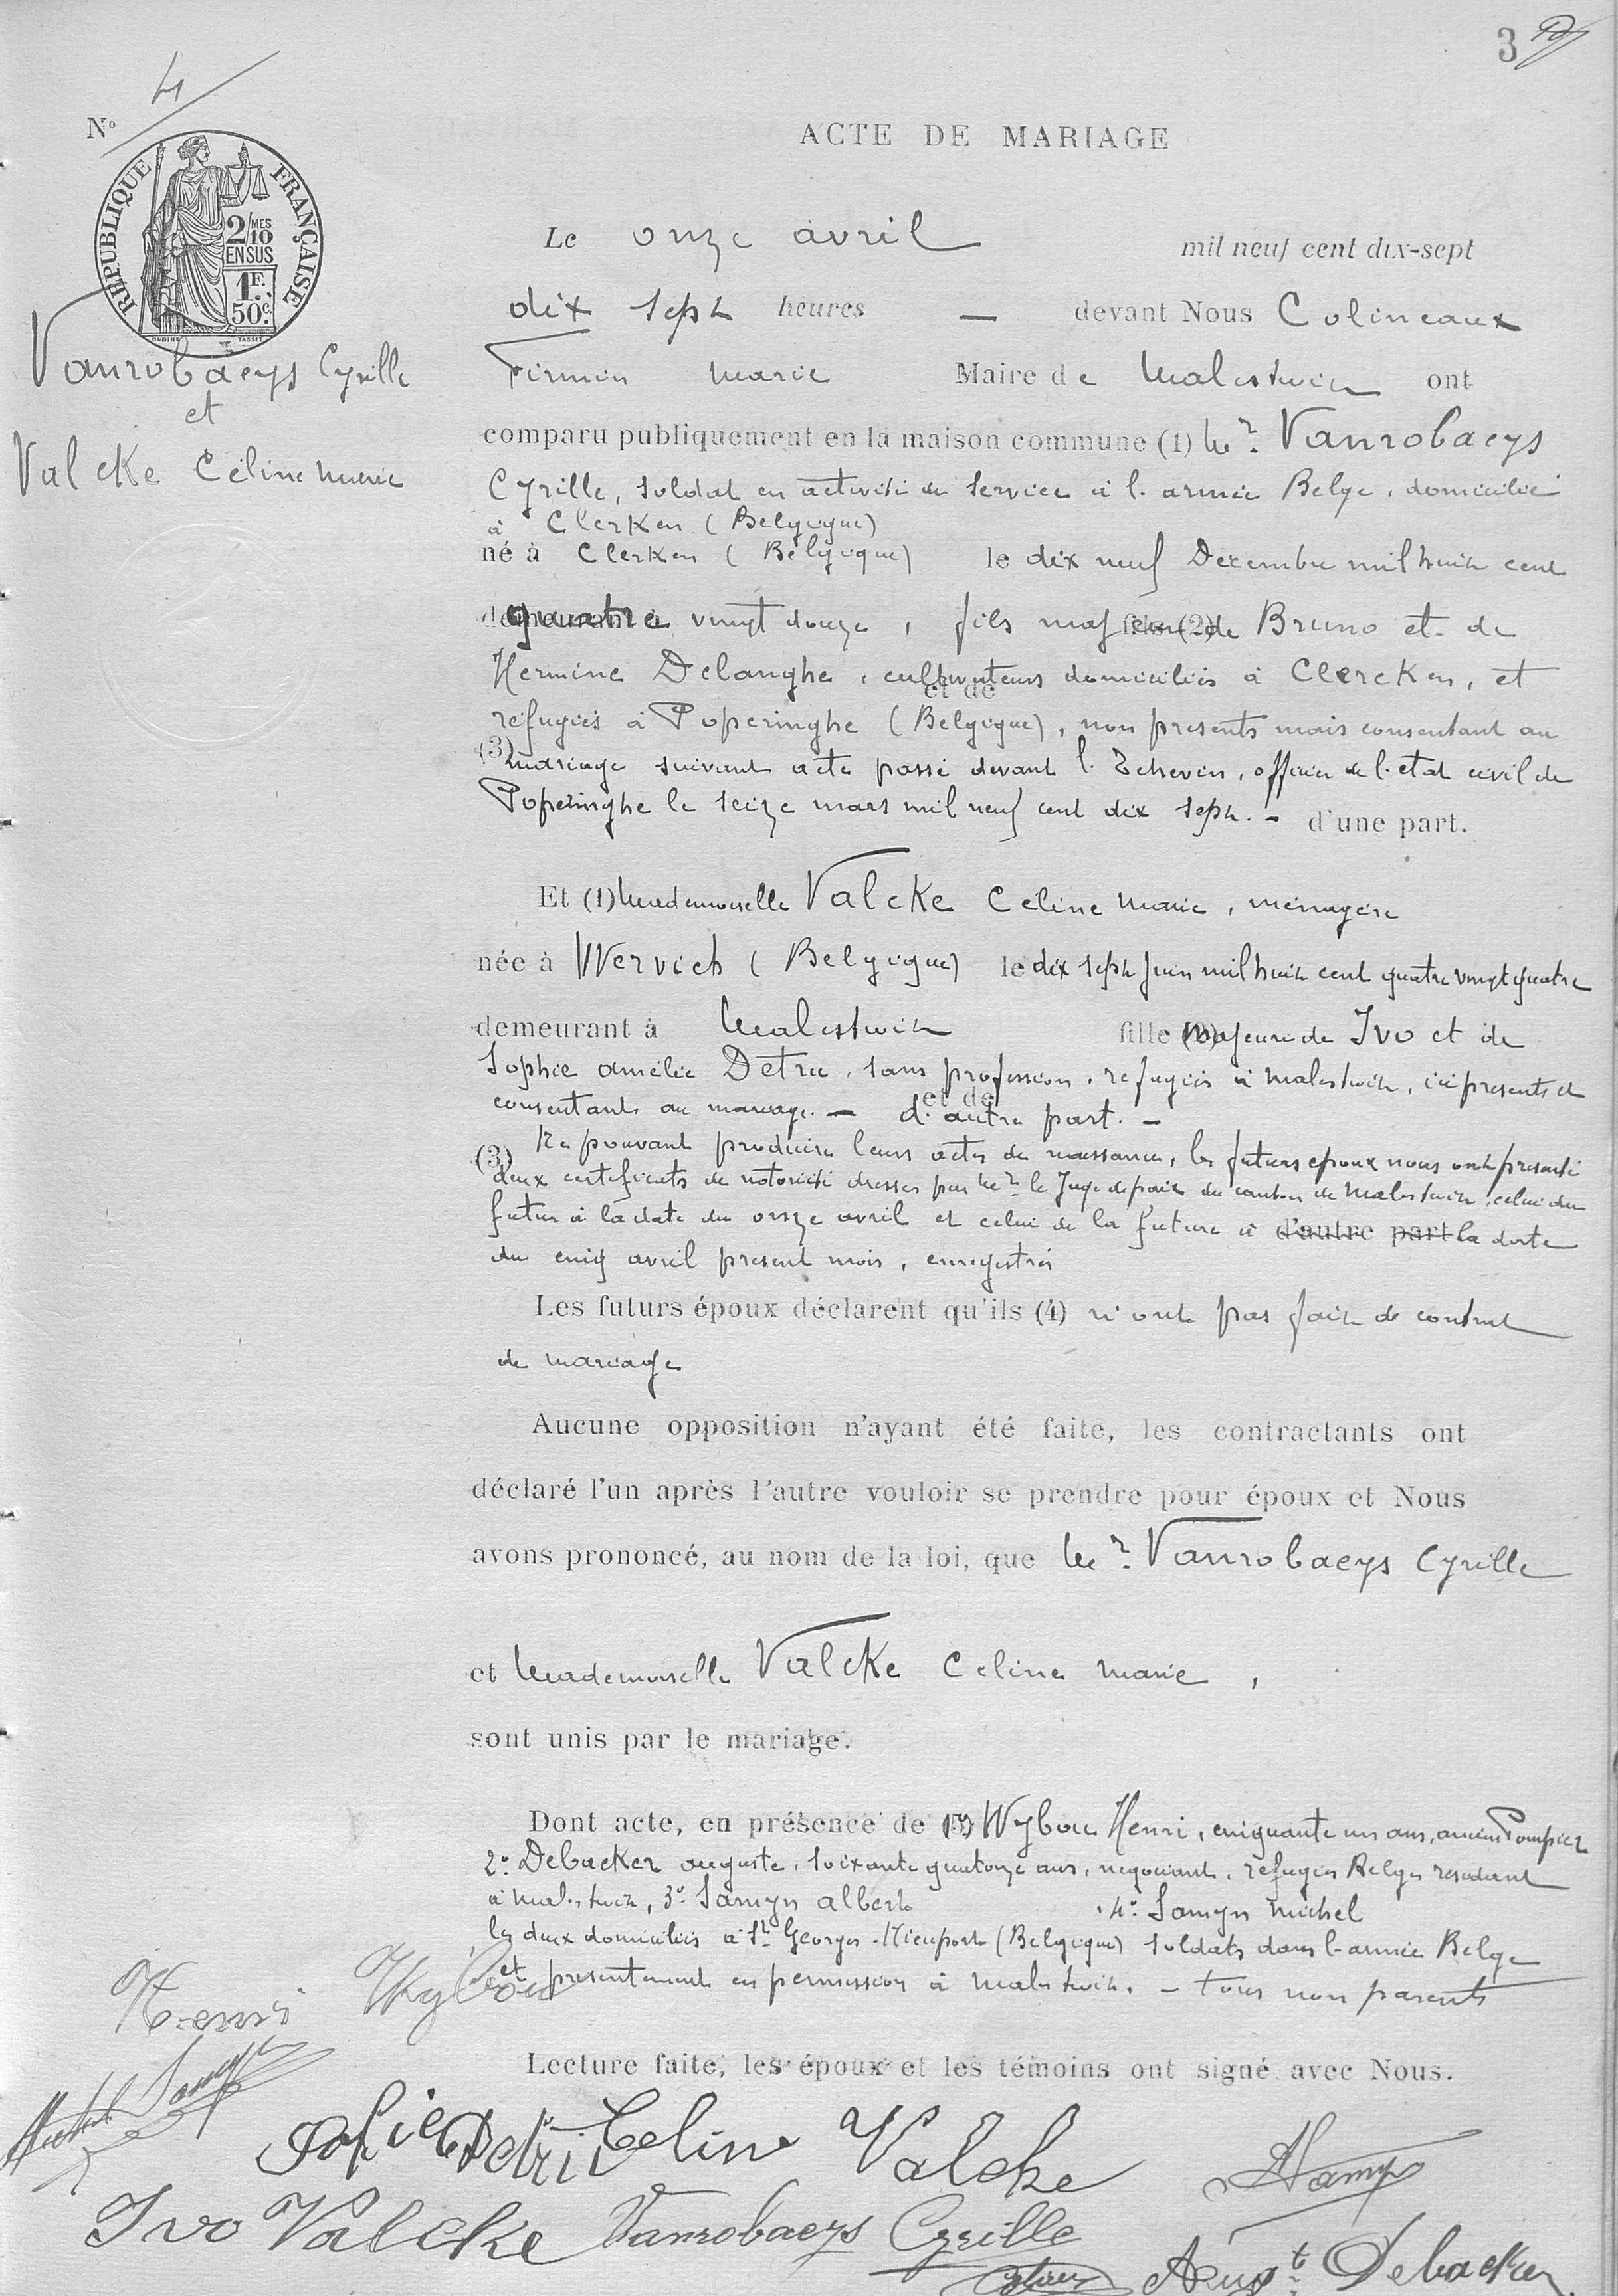 3
N° 4
ACTE DE MARIAGE
RÉPUBLIQUE FRANÇAISE
2/10 MES
EN SUS
1F.
50c.
Vanrobaeys Cyrille
et
Valcke Céline Marie
Le onze avril mil neuf cent dix-sept
dix sept heures — devant Nous Colineaux
Firmin Marie Maire de Malestroit ont
comparu publiquement en la maison commune (1) Mr. Vanrobaeys
Cyrille, soldat en activité de service à l'armée Belge, domicilié
à Clerken (Belgique)
né à Clerken (Belgique) le dix neuf Décembre mil huit cent
quatre vingt douze, fils maj de Bruno et de
Hermine Delanghe, cultivateurs domiciliés à Clercken, et
réfugiés à Poperinghe (Belgique), non présents mais consentant au
(3) mariage suivant acte passé devant l'Echevin, officier de l'état civil de
Poperinghe le seize mars mil neuf cent dix sept. - d'une part.
Et (1) Mademoiselle Valcke Céline Marie, ménagère
née à Wervick (Belgique) le dix sept juin mil huit cent quatre vingt quatre
demeurant à Malestroit fille majeure de Ivo et de
Sophie Amélie Detru, sans profession, réfugiés à Malestroit, ici présents et
consentants au mariage. — d'autre part. -
(3) Ne pouvant produire leurs actes de naissance, les futurs époux nous ont présenté
deux certificats de notoriété dressés par Mr. le Juge de paix du canton de Malestroit, celui du
futur à la date du onze avril et celui de la future à d'autre part la date
du cinq avril présent mois, enregistrés
Les futurs époux déclarent qu'ils (4) n'ont pas fait de contrat
de mariage
Aucune opposition n'ayant été faite, les contractants ont
déclaré l'un après l'autre vouloir se prendre pour époux et Nous
avons prononcé, au nom de la loi, que Mr. Vanrobaeys Cyrille
et Mademoiselle Valcke Céline Marie,
sont unis par le mariage.
Dont acte, en présence de Wybou Henri, cinquante un ans, ancien Pompier
2° Debacker Auguste, soixante quatorze ans, négociant, réfugiés Belges résidant
à Malestroit, 3° Samyn Albert 4° Samyn Michel
les deux domiciliés à St. Georges-Nieuport (Belgique) soldats dans l'armée Belge
et présentement en permission à Malestroit. - tous non parents
Lecture faite, les époux et les témoins ont signé avec Nous.
Henri Wybou
Michel Samyn
Sofie Detru Celine Valcke
A Samyn
Ivo Valcke Vanrobaeys Cyrille
Augt Debacker